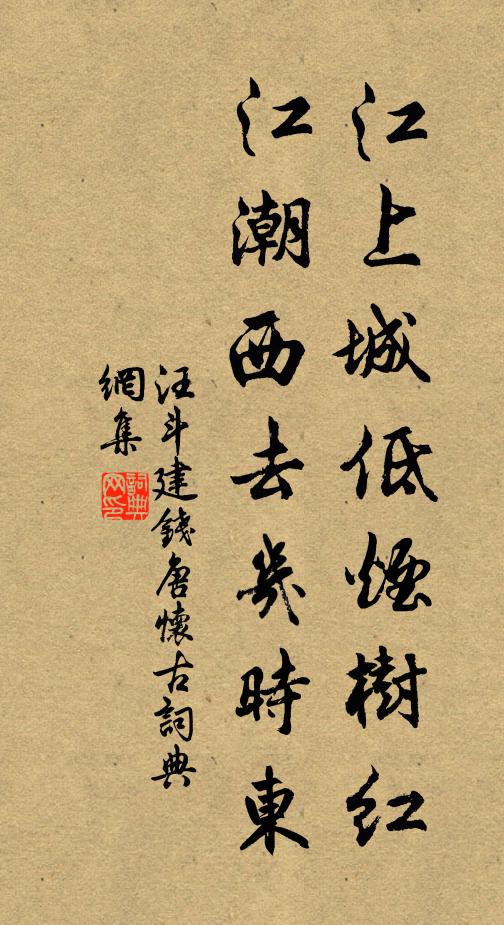 江上城低煙樹紅
江潮西去幾時東
汪斗建錢唐懷古詞典
網集
詞典
网印